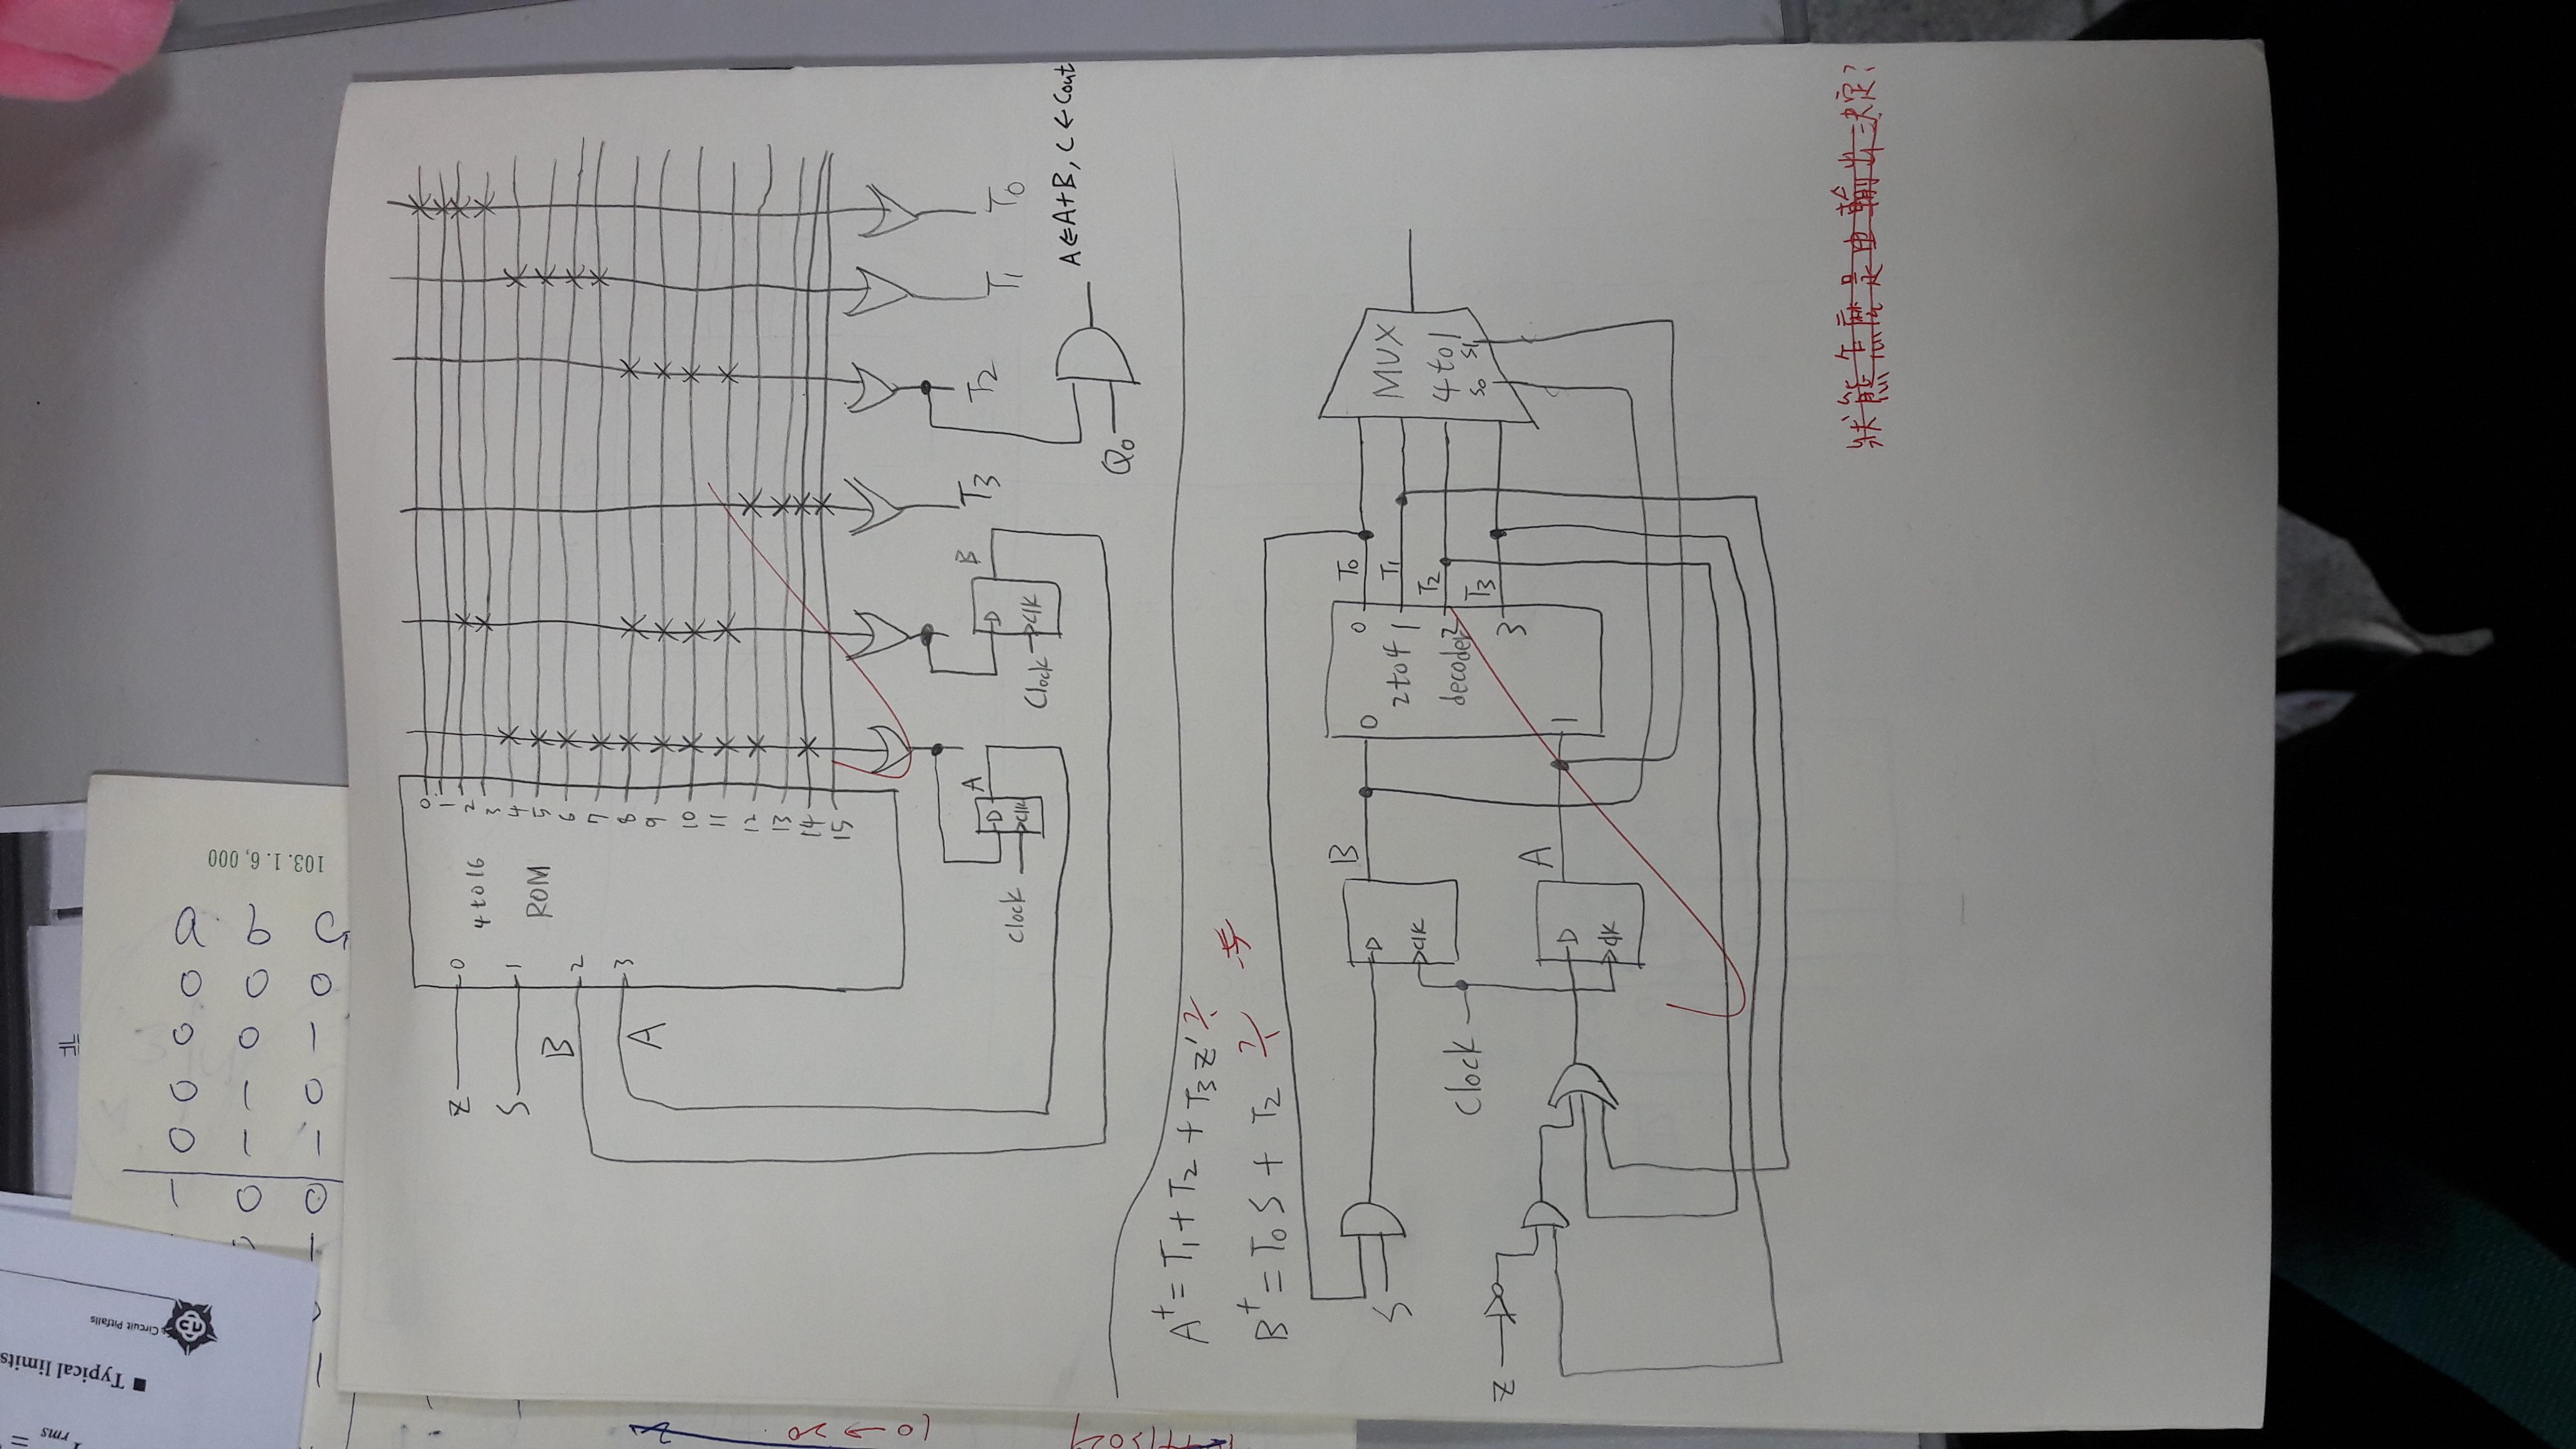 rms =
■ Typical limits
Circuit Pitfalls
1 0 0 0 0 a
0 1 1 0 0 b
0 1 0 1 0 c
103.1.6,000
10→20
Z
S
B
A
0
1
2
3
4 to 16
ROM
0
1
2
3
4
5
6
7
8
9
10
11
12
13
14
15
A
D
Clock
Clk
B
D
Clock
Clk
T3
T2
T1
T0
Q0
A⇐A+B, C←Cout
A⁺ = T1 + T2 + T3 Z' ?
B⁺ = T0 S + T2 ?
S
D
B
Clk
Clock
Z
D
A
Clk
0
1
2 to 4
decoder
0
1
2
3
T0
T1
T2
T3
MUX
4 to 1
S0 S1
狀態怎麼是由輸出決定?